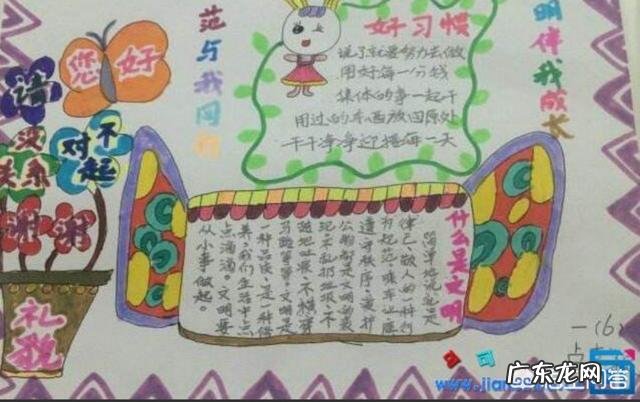 范与我同行
明伴我成长
您好
请
没关系
对不起
谢谢
礼貌
好习惯
说了就要努力去做
用好每一分钱
集体的事一起干
用过的东西放回原处
干干净净迎接每一天
什么是文明
简单地说就是
律己、敬人的一种行
遵守秩序、爱护
公物都是文明的表
现不乱扔垃圾、不
随地吐痰、不横穿
马路等等。文明是
一种品质是一种修
养，我们生活中点
点滴滴。文明要
从小事做起。
一(6)
www.jian
广东龙网